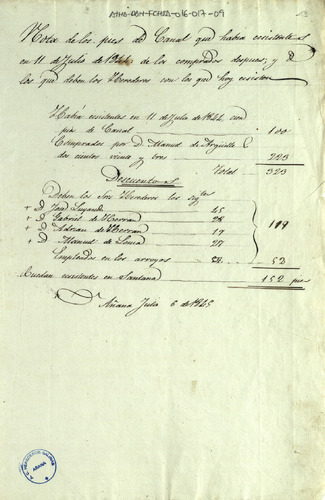 ATHA-DAH-FCHSA-016-017-09
Nota de los pies de Canal que habia existentes
en 11 de Julio de 1844 de los comprados despues, y
los que deben los Herederos con lo que hoy existen
Habia existentes en 11 de Julio de 1844 cien
pies de Canal 100
Comprados por D. Manuel de Arguille
dos cientos veinte y tres 223
Total 323
Descuentos
Deben los Sres Herederos los sigtes
+ D José 25
+ D Gabriel de Herran 28
+ D Adrian de Herran 19
+ D Manuel de 27
119
Empleados en los arroyos 52
Quedan existentes en Santana 152 pies
Añana Julio 6 de 1845
AÑANA